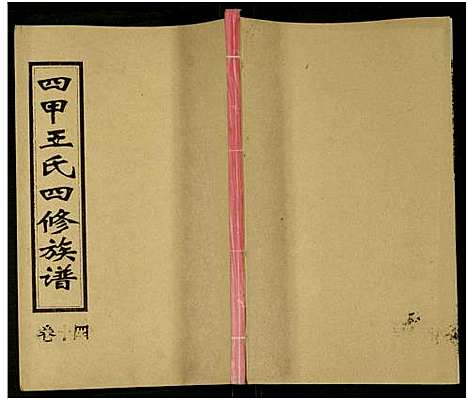 四甲王氏四修族谱
卷十四